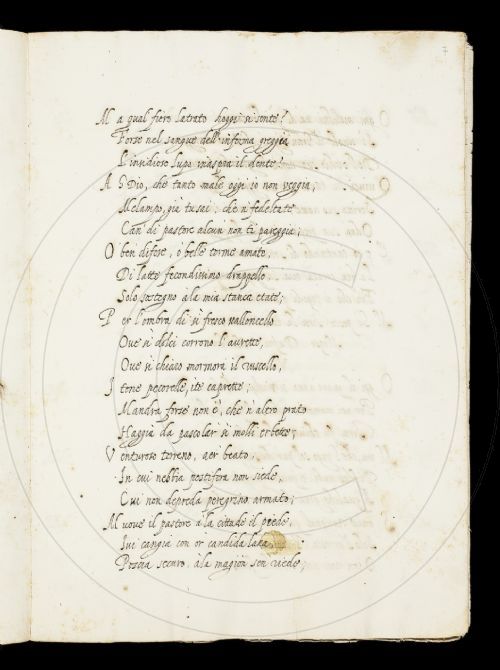 7
Ma qual fiero latrato hoggi si sente?
Forse nel sangue dell'inferma greggia
L'insidioso lupo inaspra il dente?
A Dio, che tanto male oggi io non veggia;
Melampo, già tu sai; che 'n fedeltate
Can di pastore alcun non ti pareggia;
O ben difese, o belle torme amate
Di latte fecondissimo drappello
Solo sostegno a la mia stanca etate;
Per l'ombra di sì fresco valloncello
Oue sì dolci corrono l'aurette,
Oue sì chiaco mormora il ruscello,
Itene pecorelle, ite caprette;
Mandra forse non è, che 'n altro prato
Haggia da pascolar sì molli erbette;
Venturoso terreno, aer beato,
In cui nebbia pestifera non siede,
Cui non depreda peregrino armato;
Muoue il pastore a la cittade il piede,
Iui cangia con or candida lana
Poscia securo à la magion sen riede;